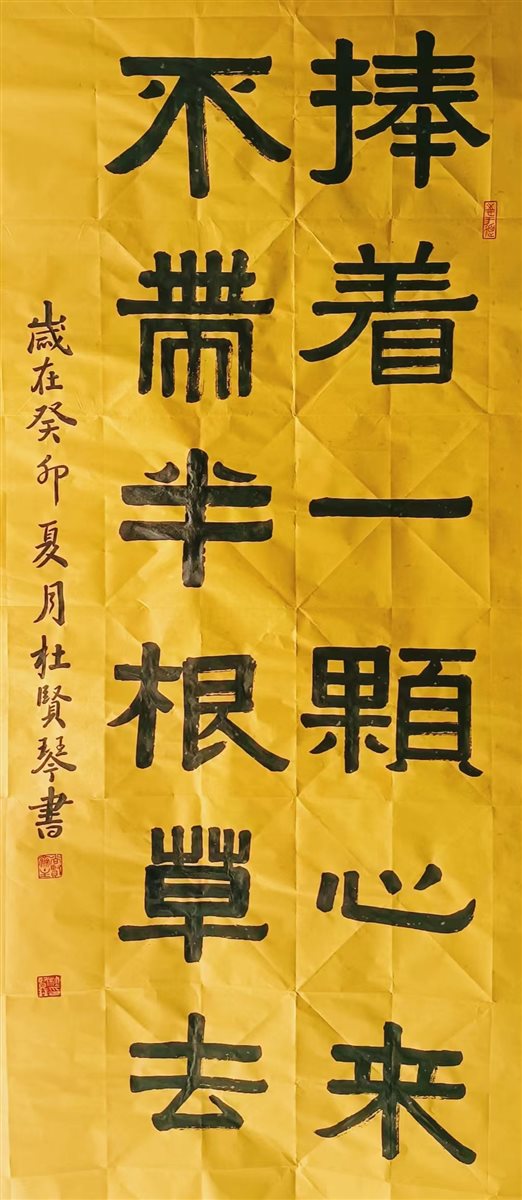 捧着一顆心来
不帶半根草去
歲在癸卯夏月杜賢琴書